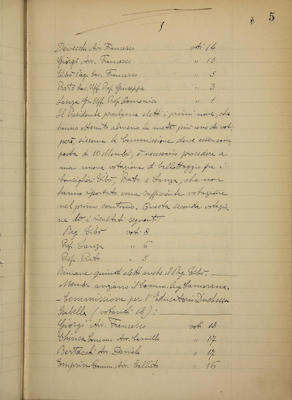 5
Devecchi Avv. Francesco voti 14
Giorgi Avv. Francesco " 10
Cibò Rag. Cav. Francesco " 5
Prato Uff. Prof. Giuseppe " 3
Lanza Uff. Prof. Domenico " 1
Il Presidente proclama eletti i primi nove, che
hanno ottenuto almeno la metà più uno dei voti,
però, siccome la Commissione deve esser com
posta di 10 Membri, è necessario procedere a
una nuova votazione di ballottaggio fra i
Consiglieri Cibò, Prato e Lanza, che non
hanno riportato una sufficiente votazione
nel primo scrutinio. Questa seconda votazio
ne dà i risultati seguenti
Rag. Cibò voti 8
Prof. Lanza " 6
Prof. Prato " 3
Rimane quindi eletto anche il Rag. Cibò.
Membro anziano il Comm. Ing.
Commissione per l'Educatorio Duchessa
Isabella (votanti 18):
Giorgi Avv. Francesco voti 18
Ghinea Comm. Avv. Camillo " 17
Bertacchi Avv. Daniele " 17
Comm. Avv. Callisto " 16